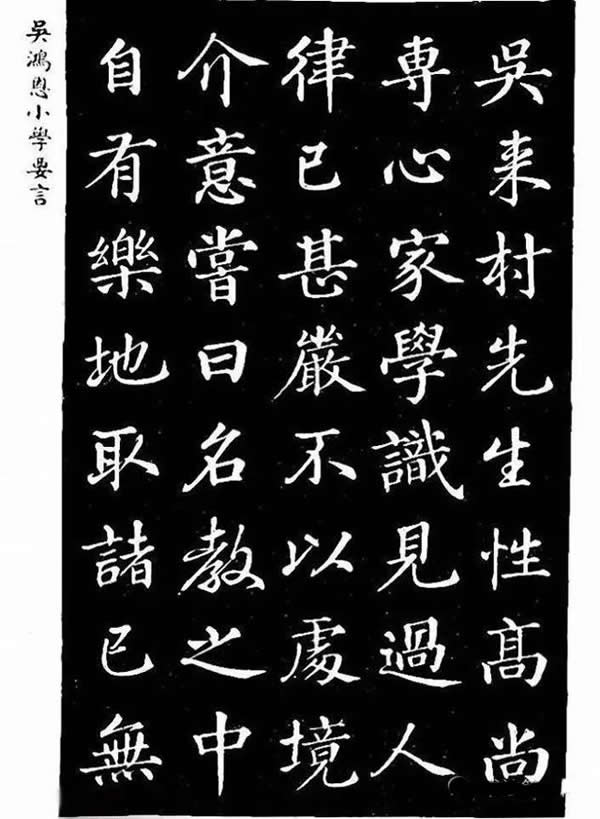 吳來村先生性高尚
專心家學識見過人
律己甚嚴不以處境
介意嘗曰名教之中
自有樂地取諸己無
吳鴻恩小學要言